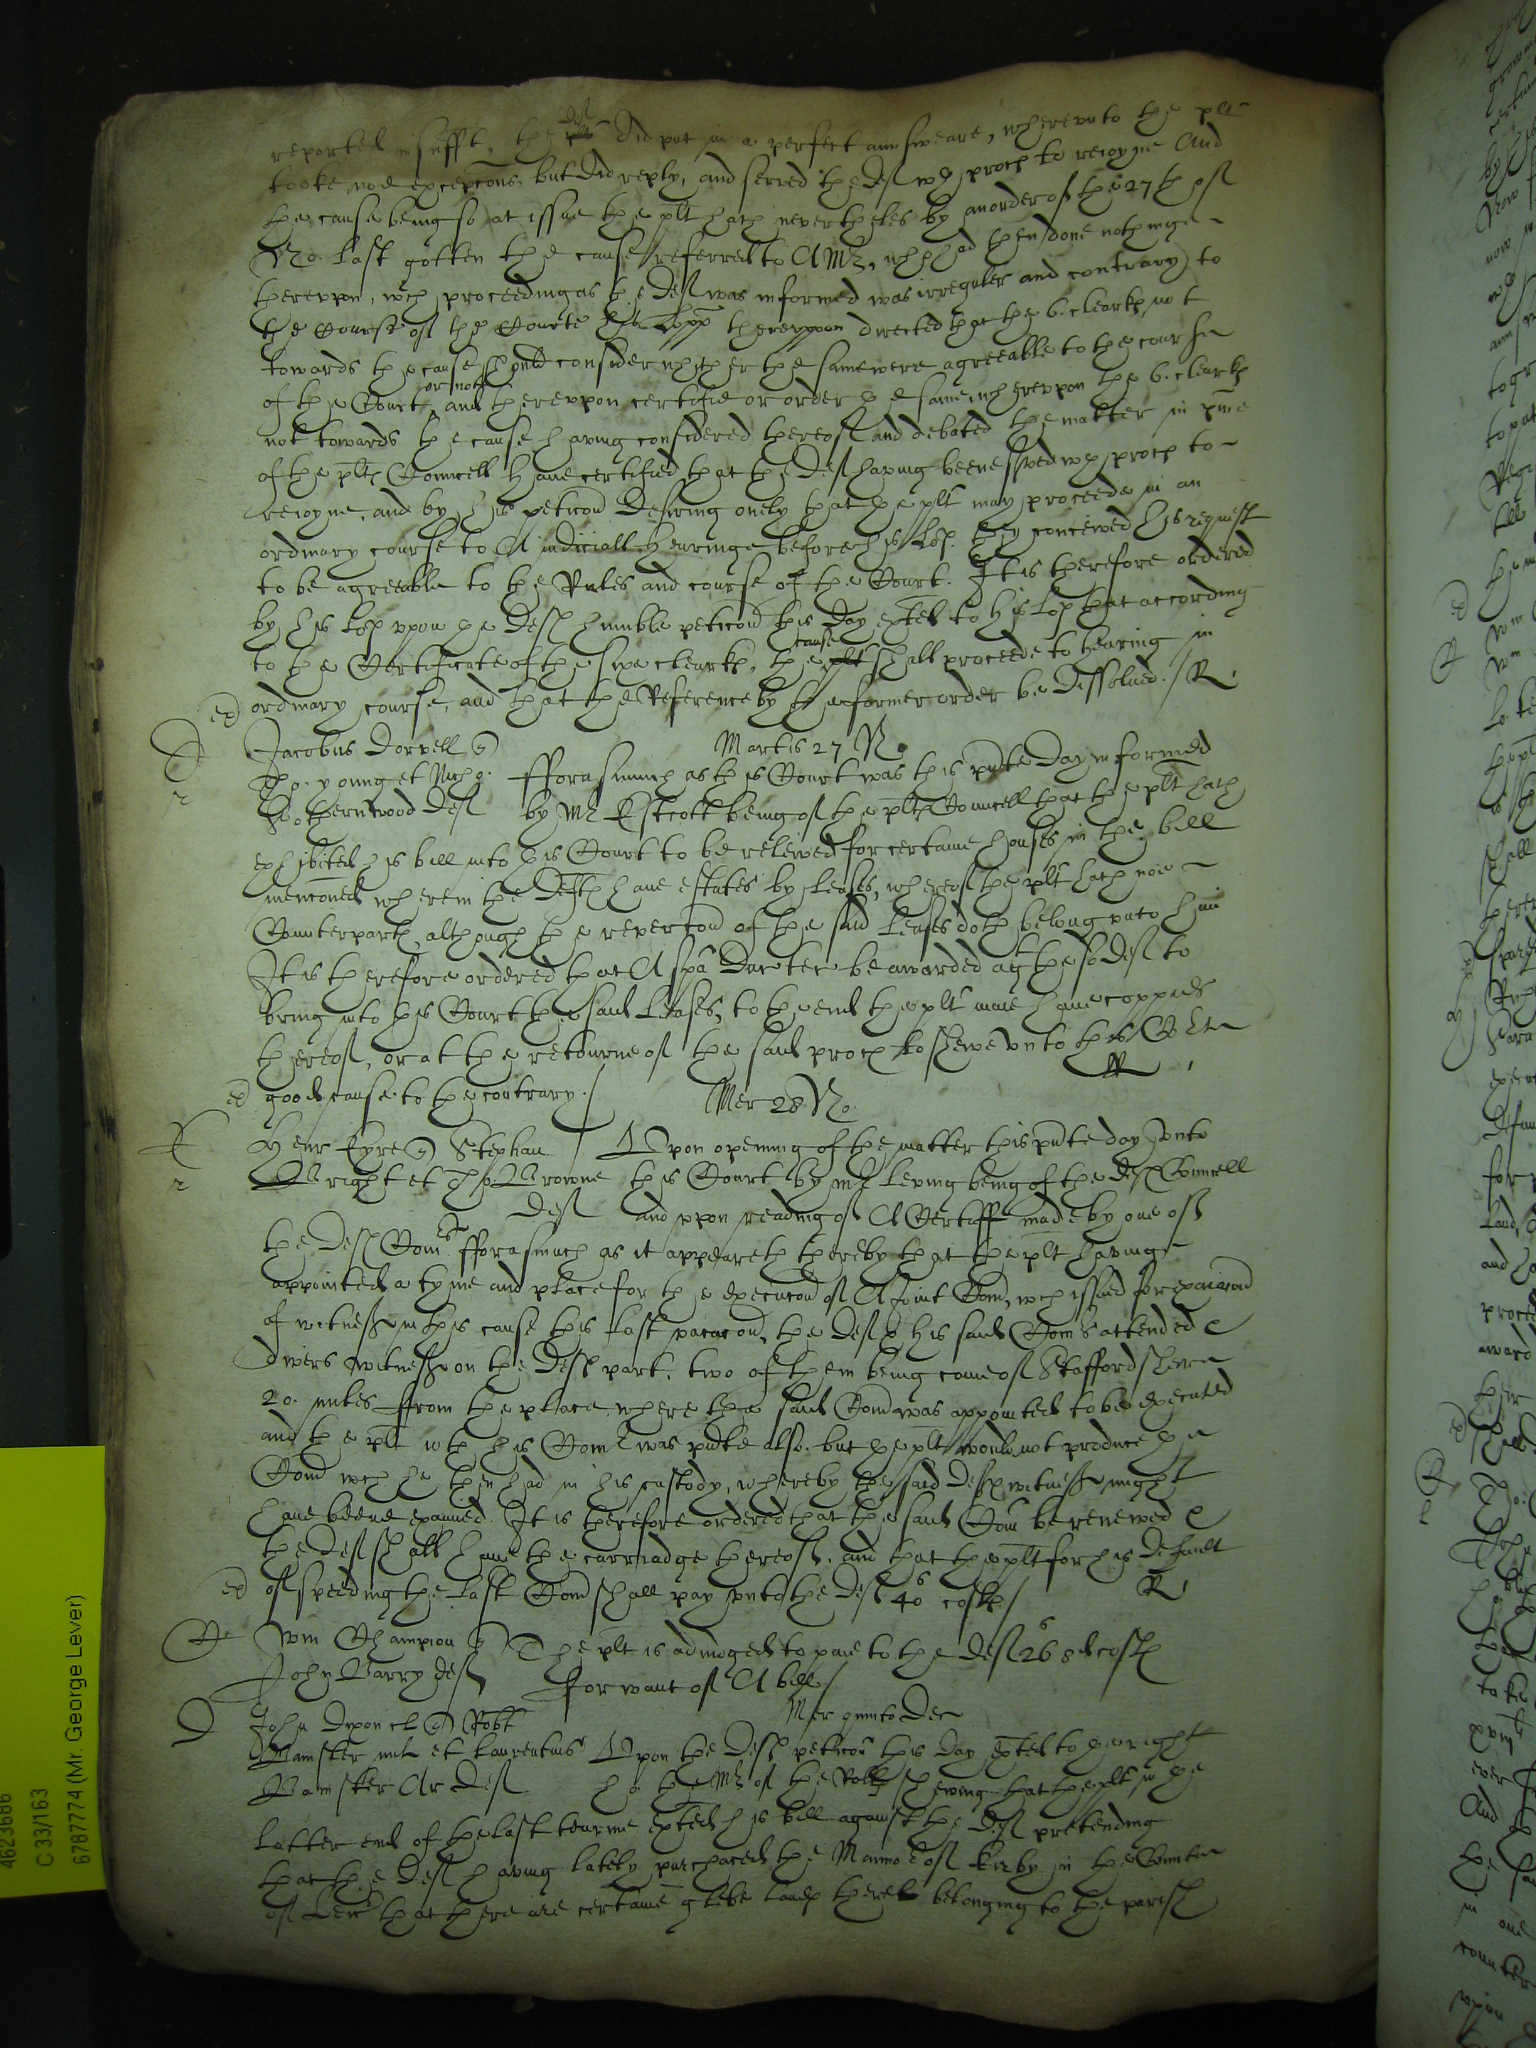 reported insufft, the def did put in a perfect aunsweare, wherevnto the plt
tooke noe excepcons, but did reply, and served the def wth proces to reioyne And
the cause being so at issue the plt hath neverthelés by an order of the 27th of
No. last gotten the cause referred to A Mr, who had then done nothinge
therevpon, wch proceedinge as the def was informed was irreguler and contrary to
the Course of the Courte his Lopp therevppon directed that the 6. clearkes not
towards the cause should consider whither the same were agreeable to the course
of the Court, or not and therevpon certifie or order the same wherevpon the 6. clearkes
not towards the cause having considered thereof and debated the matter in pñce
of the plts Councell have certified that the def having beene served wth proces to
reioyne, and by his peticon desiring onely that the plt may proceede in an
ordinary course to A iudiciall hearinge before his Lop. they conceived his request
to be agreeable to the Rules and course of the Court. It is therefore ordered
by his Lop vpon the defs humble peticon this day exted to his Lop that according
to the Certificate of the sixe clearkes, the cause shall proceede to hearing in
ed ordinary course, and that the Reference by the former order be dissolued. / R
Jacobus Dorrell Martis 27 No
Tho. young et Nich o. fforasmuch as this Court was this pñte day informed
Sothernwood def by Mr Estcott being of the plts Councell that the plt hath
exhibited his bill into this Court to be releived for certaine houses in the bill
mencõned wherein the Defts have estates by Leases, whereof the plt hath noe
Counterparts, although the revercon of the said Leases doth belong vnto him
It is therefore ordered that A spa Duc tec be awarded agt the sd def to
bring into this Court the said Leases, to the end the plt maie have coppies
thereof, or at the retourne of the said proces to shewe vnto this Court
ed good cause to the contrary. / R
Mer 28 No.
Henr Eyre Stephan Vpon opening of the matter this pñte day vnto
Wright et Tho. Browne this Court by Mr Leving being of the defs Councell
def and vpon reading of A Certiff made by one of
the defs Comrs. fforasmuch as it appeareth thereby that the plt having
appointed a tyme and place for the execucon of A Joint Com, wch issued for exaiacon
of witnesses in this cause this last vacacon, the def & his said Comrs attended &
divers witnesses on the defs part, two of them being come of Staffordsheire
20. miles from the place, where the said Com was appointed to be executed
and the plt wth his Comr was pñte also. but the plt would not produce the
Com wch he then had in his custody, whereby the said defs witnesses might
have beene examned. It is therefore ordered that the said Com be renewed &
the def shall have the carriadge thereof. and that the plt for his default
ed of speeding the last Com shall pay vnto the def 40s costs / R
Wm Champion The plt is adiudged to paie to the def 26s 8d costs
John Barry def for want of A bill /
Mer quinto Dec
John Dixon cl Robt
Bainster mil et Laurentius Vpon the defs peticon this day exted to the right
Bainster Ar def ho. the Mr of the Rolls shewing that the plt in the
latter end of the last tearme exted his bill against the def pretending
that the def having lately purchaced the Mannor of Kirby in the Countie
of Leic that there are certaine glebe lands there belonging to the parish
4623686
C 33/163
6787774 (Mr. George Lever)